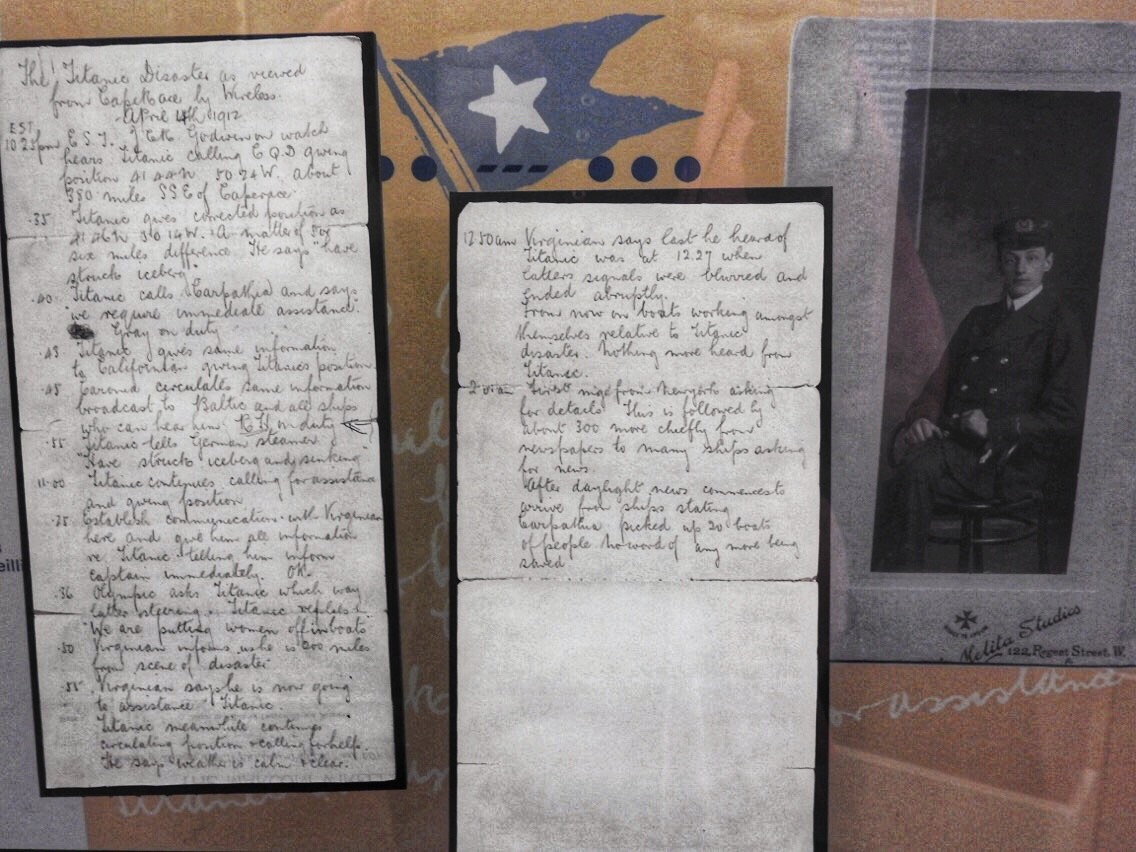 The Titanic Disaster as viewed
from Cape Race by Wireless.
April 14th 1912
EST
10 25pm E.S.T. J.C.R. Godwin on watch
hears Titanic calling C.Q.D giving
position 41 44N 50 24W. about
380 miles SSE of Caperace
.35 Titanic gives corrected position as
41 46N 50 14W. A matter of 5 or
six miles difference. He says "have
struck iceberg"
.40 Titanic calls Carpathia and says
"we require immediate assistance".
Gray on duty
.43 Titanic gives same information
to Californian giving Titanics position
.45 Caronia circulates same information
broadcast to Baltic and all ships
who can hear him on duty
.55 Titanic tells German steamer
"Have struck iceberg and sinking"
11.00 Titanic continues calling for assistance
and giving position
.25 Establish communication with Virginian
here and give him all information
re Titanic telling him inform
captain immediately. OK.
.36 Olympic asks Titanic which way
latter steering. Titanic replies
"We are putting women off in boats"
.50 Virginian informs us he is 200 miles
from scene of disaster
.55 Virginian says he is now going
to assistance Titanic.
Titanic meanwhile continues
circulating position & calling for help.
He says weather is calm & clear.
12 50am Virginians says last he heard of
Titanic was at 12.27 when
latters signals were blurred and
ended abruptly.
From now on boats working amongst
themselves relative to Titanic
disaster. Nothing more heard from
Titanic.
2 05am First msge from Newyork asking
for details This is followed by
about 300 more chiefly from
newspapers to many ships asking
for news.
After daylight news commences to
arrive from ships stating
Carpathia picked up 20 boats
of people no word of any more being
saved
Melita Studios
122, Regent Street, W.
or assistance